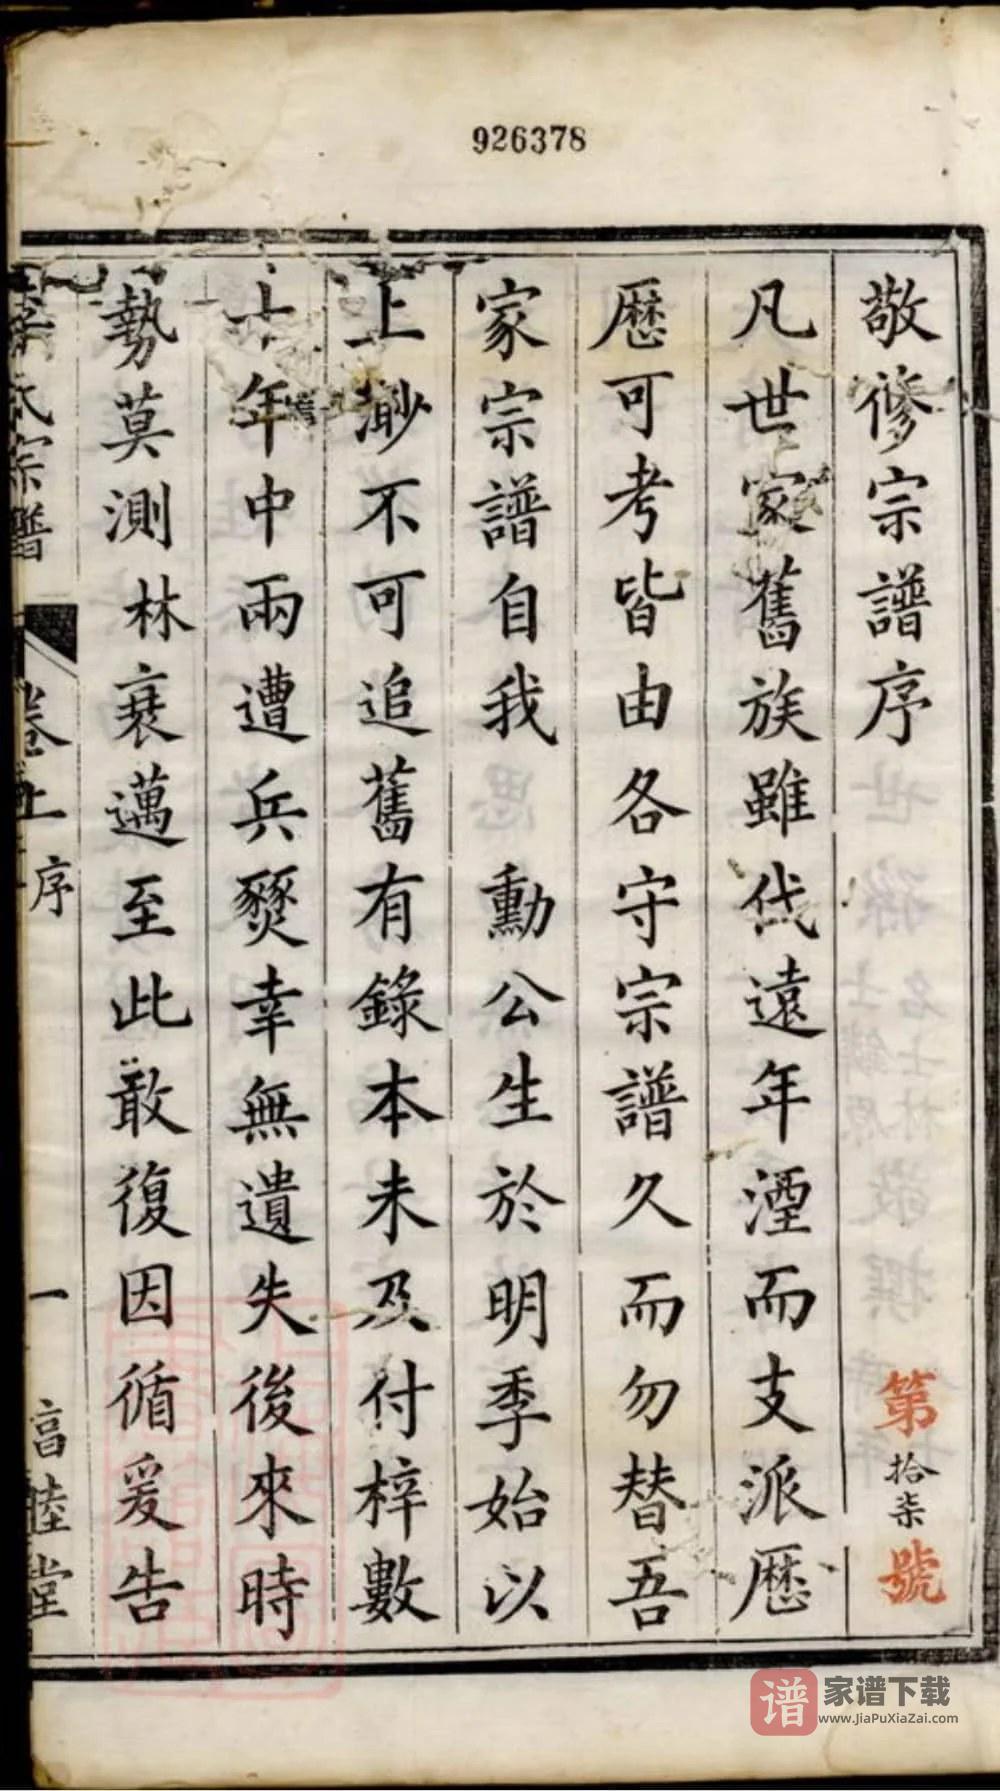 926378
敬修宗譜序
第拾柒號
凡世家舊族雖代遠年湮而支派歷
歷可考皆由各守宗譜久而勿替吾
家宗譜自我 勳公生於明季始以
上渺不可追舊有錄本未及付梓數
十年中兩遭兵燹幸無遺失後來時
勢莫測林衰邁至此敢復因循爰告
氏宗譜 卷上 序 一 睦堂
家谱下载
www.JiaPuXiaZai.com